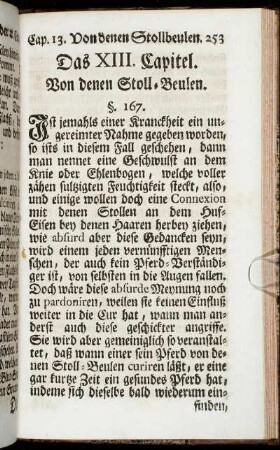 Cap. 13. Von denen Stollbeulen. 253
Das XIII. Capitel.
Von denen Stoll-Beulen.
§. 167.
Ist jemahls einer Kranckheit ein un-
gereimter Nahme gegeben worden,
so ists in diesem Fall geschehen, dann
man nennet eine Geschwulst an dem
Knie oder Ehlenbogen, welche voller
zähen sultzigten Feuchtigkeit steckt, also,
und einige wollen doch eine Connexion
mit denen Stollen an dem Huf-
Eisen bey denen Haaren herbey ziehen,
wie absurd aber diese Gedancken seyn,
wird einem jeden vernünfftigen Men-
schen, der auch kein Pferd-Verständi-
ger ist, von selbsten in die Augen fallen.
Doch wäre diese absurde Meynung noch
zu pardoniren, weilen sie keinen Einfluß
weiter in die Cur hat, wann man an-
derst auch diese geschickter angriffe.
Sie wird aber gemeiniglich so veranstal-
tet, daß wann einer sein Pferd von de-
nen Stoll-Beulen curiren läßt, er eine
gar kurtze Zeit ein gesundes Pferd hat,
indeme sich dieselbe bald wiederum ein-
finden,